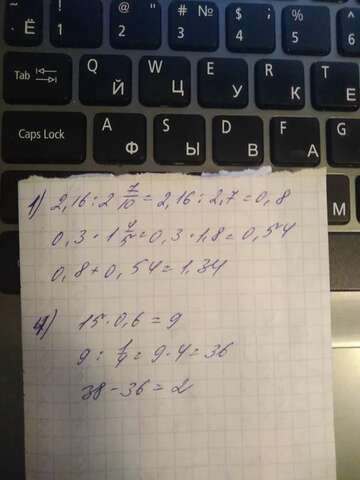 . Ё ! 1 @ " 2 # № 3 $ ; 4 % 5 ^ 6
Tab Q Й W Ц E У R К T Е
Caps Lock A Ф S Ы D В F А
1) 2,16 : 2 7/10 = 2,16 : 2,7 = 0,8
0,3 · 1 4/5 = 0,3 · 1,8 = 0,54
0,8 + 0,54 = 1,34
4) 15 · 0,6 = 9
9 : 1/4 = 9 · 4 = 36
38 - 36 = 2